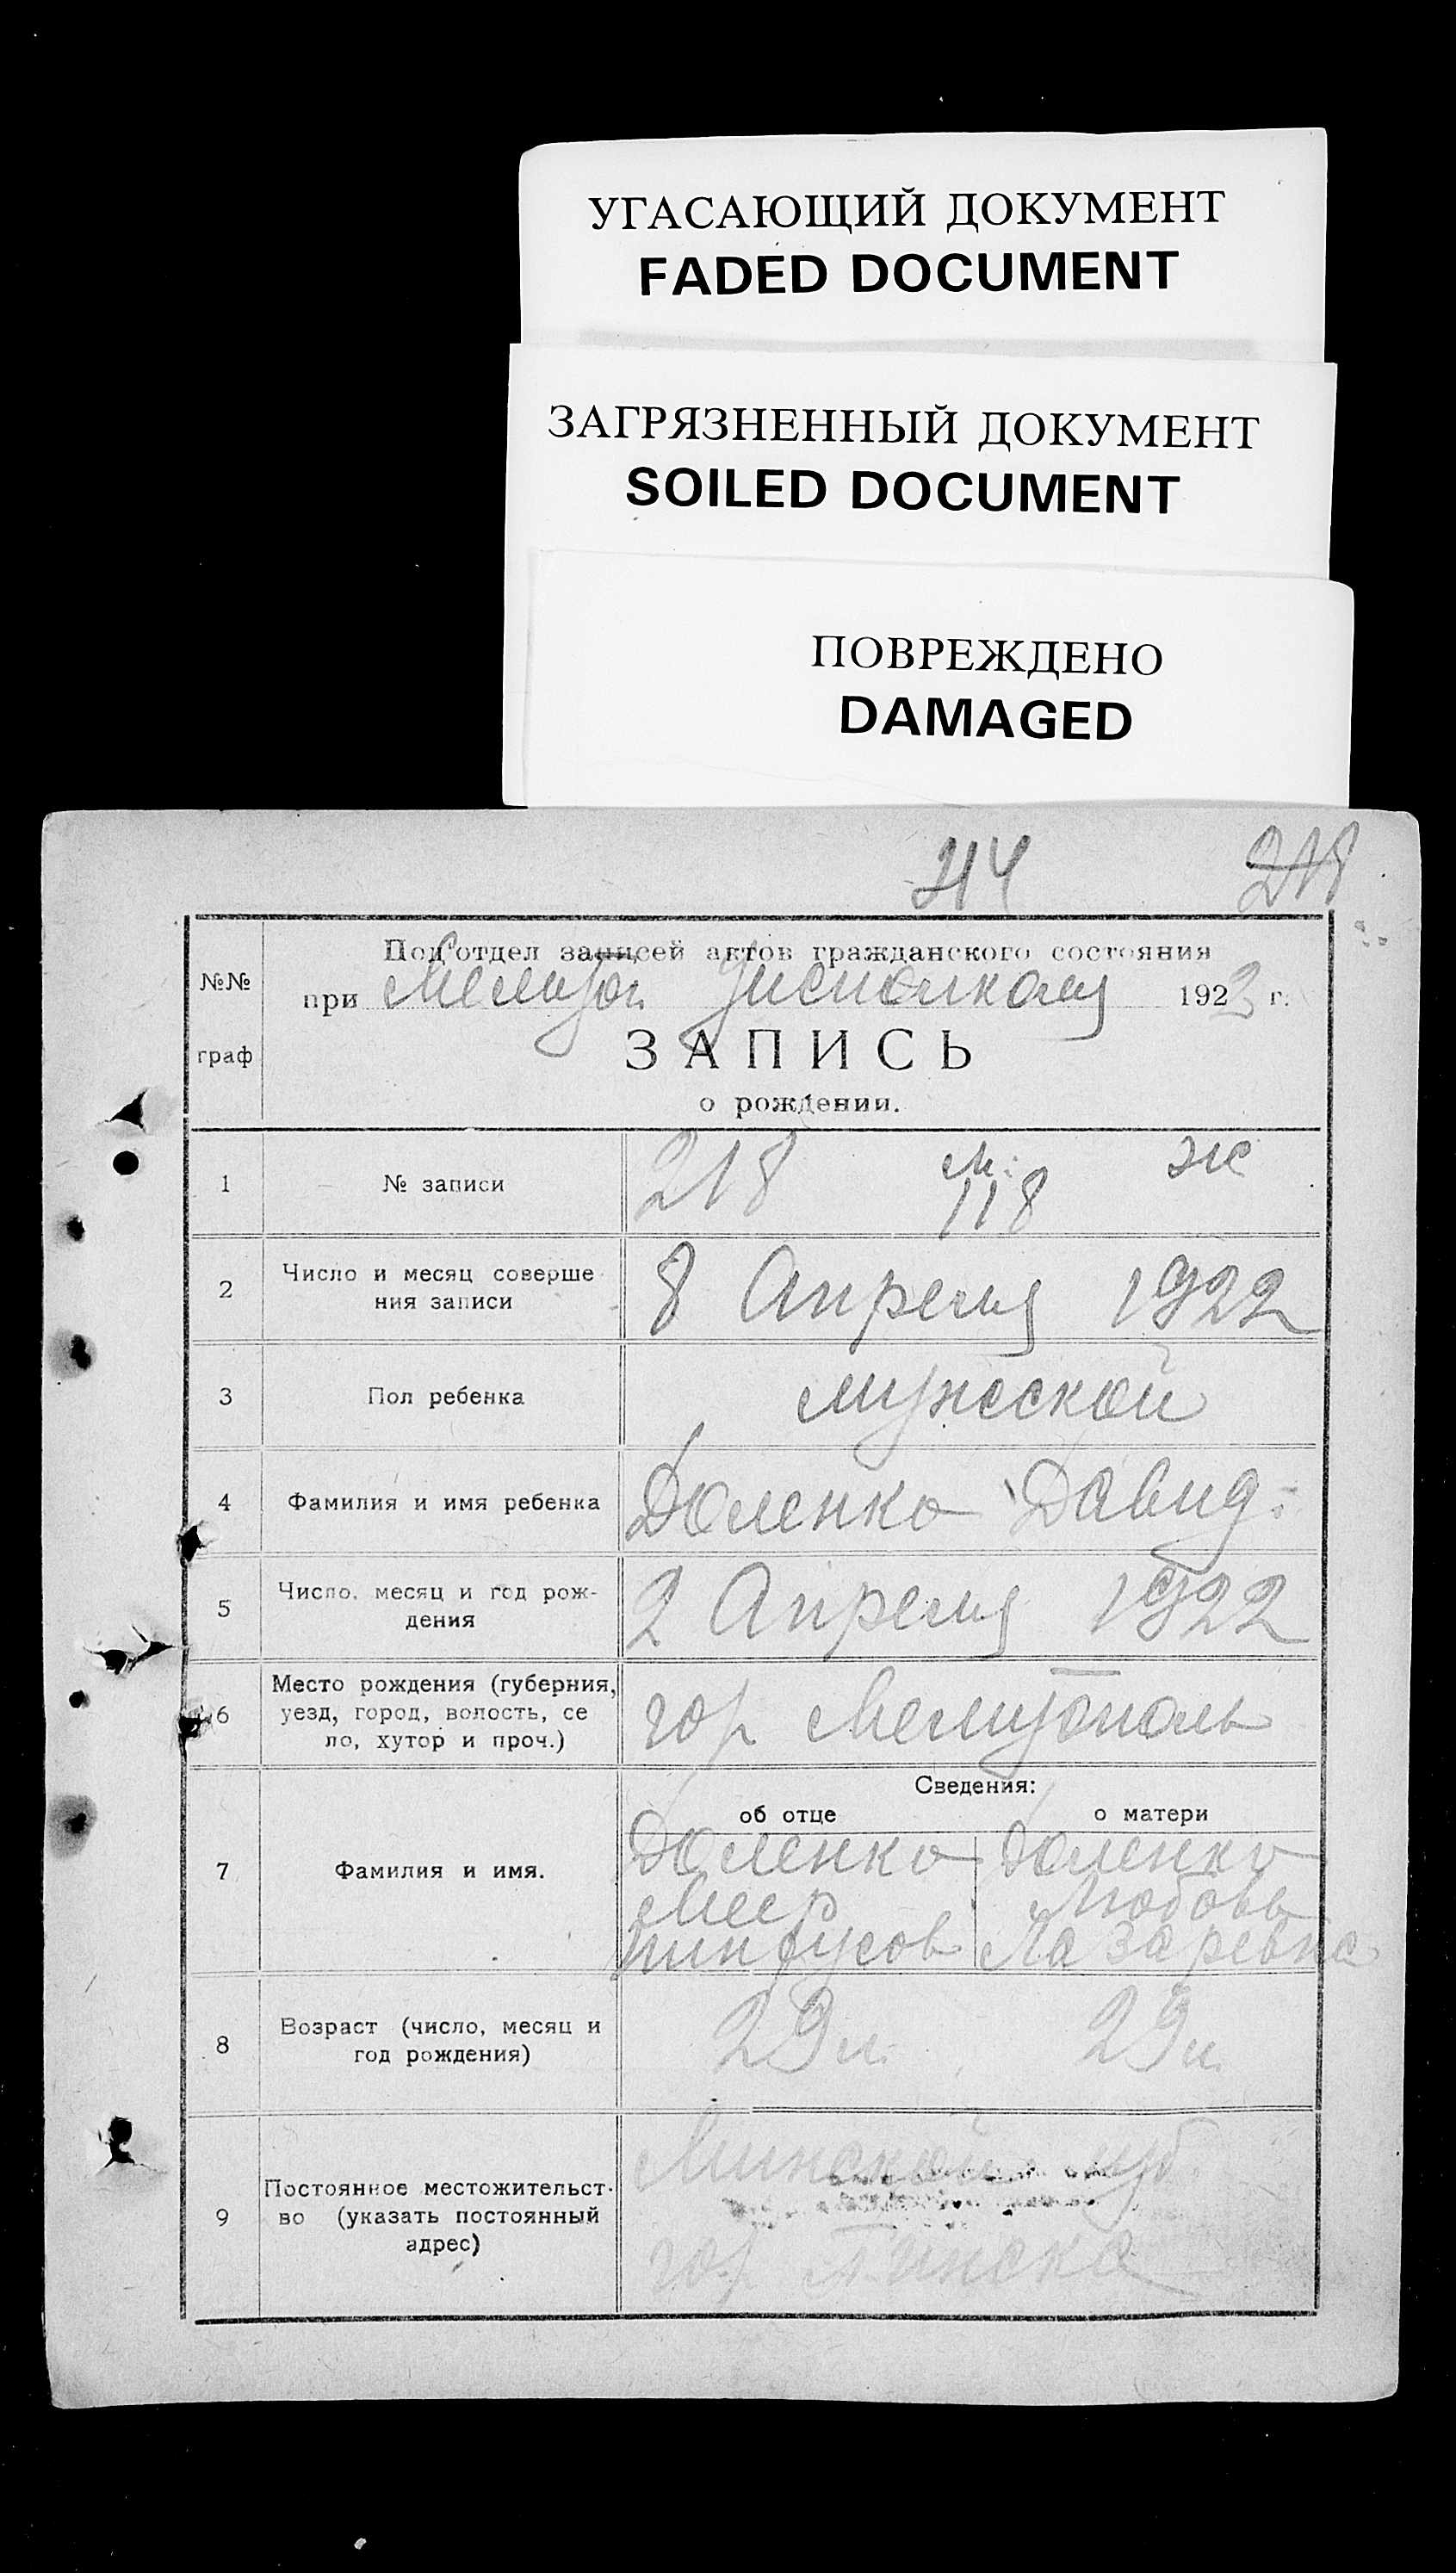 УГАСАЮЩИЙ ДОКУМЕНТ
FADED DOCUMENT
ЗАГРЯЗНЕННЫЙ ДОКУМЕНТ
SOILED DOCUMENT
ПОВРЕЖДЕНО
DAMAGED
214 218
Под'отдел записей актов гражданского состояния
№№ при Мелитоп. Уисполкома 1922 г.
граф ЗАПИСЬ
о рождении.
1 № записи 218 м: 118 ж
2 Число и месяц соверше
ния записи 8 Апреля 1922
3 Пол ребенка мужской
4 Фамилия и имя ребенка Доленко Давид.
5 Число, месяц и год рож-
дения 2 Апреля 1922
6 Место рождения (губерния,
уезд, город, волость, се
ло, хутор и проч.) гор Мелитополь
Сведения:
об отце о матери
7 Фамилия и имя. Доленко Доленко
Меер Любовь
Пинхусов Лазаревна
8 Возраст (число, месяц и
год рождения) 29 л. 29 л.
9 Постоянное местожительст-
во (указать постоянный
адрес) Минской губ.
гор Пинска